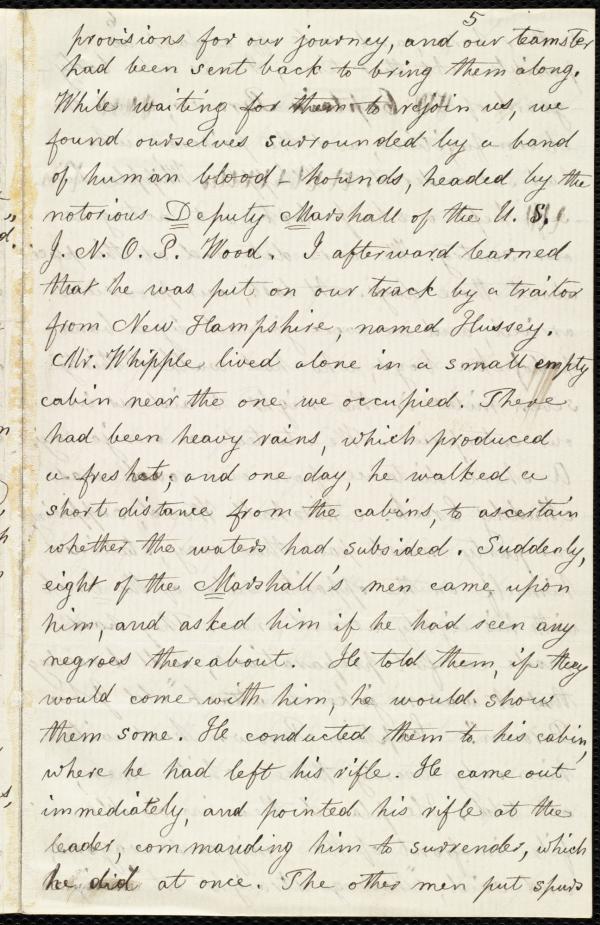 5
provisions for our journey, and our teamster
had been sent back to bring them along.
While waiting for them to rejoin us, we
found ourselves surrounded by a band
of human blood-hounds, headed by the
notorious Deputy Marshall of the U. S.,
J. N. O. P. Wood. I afterward learned
that he was put on our track by a traitor
from New Hampshire, named Hussey.
Mr. Whipple lived alone in a small empty
cabin near the one we occupied. There
had been heavy rains, which produced
a freshet; and one day, he walked a
short distance from the cabins, to ascertain
whether the waters had subsided. Suddenly,
eight of the Marshall's men came upon
him, and asked him if he had seen any
negroes thereabout. He told them, if they
would come with him, he would show
them some. He conducted them to his cabin,
where he had left his rifle. He came out
immediately, and pointed his rifle at the
leader, commanding him to surrender, which
he did at once. The other men put spurs